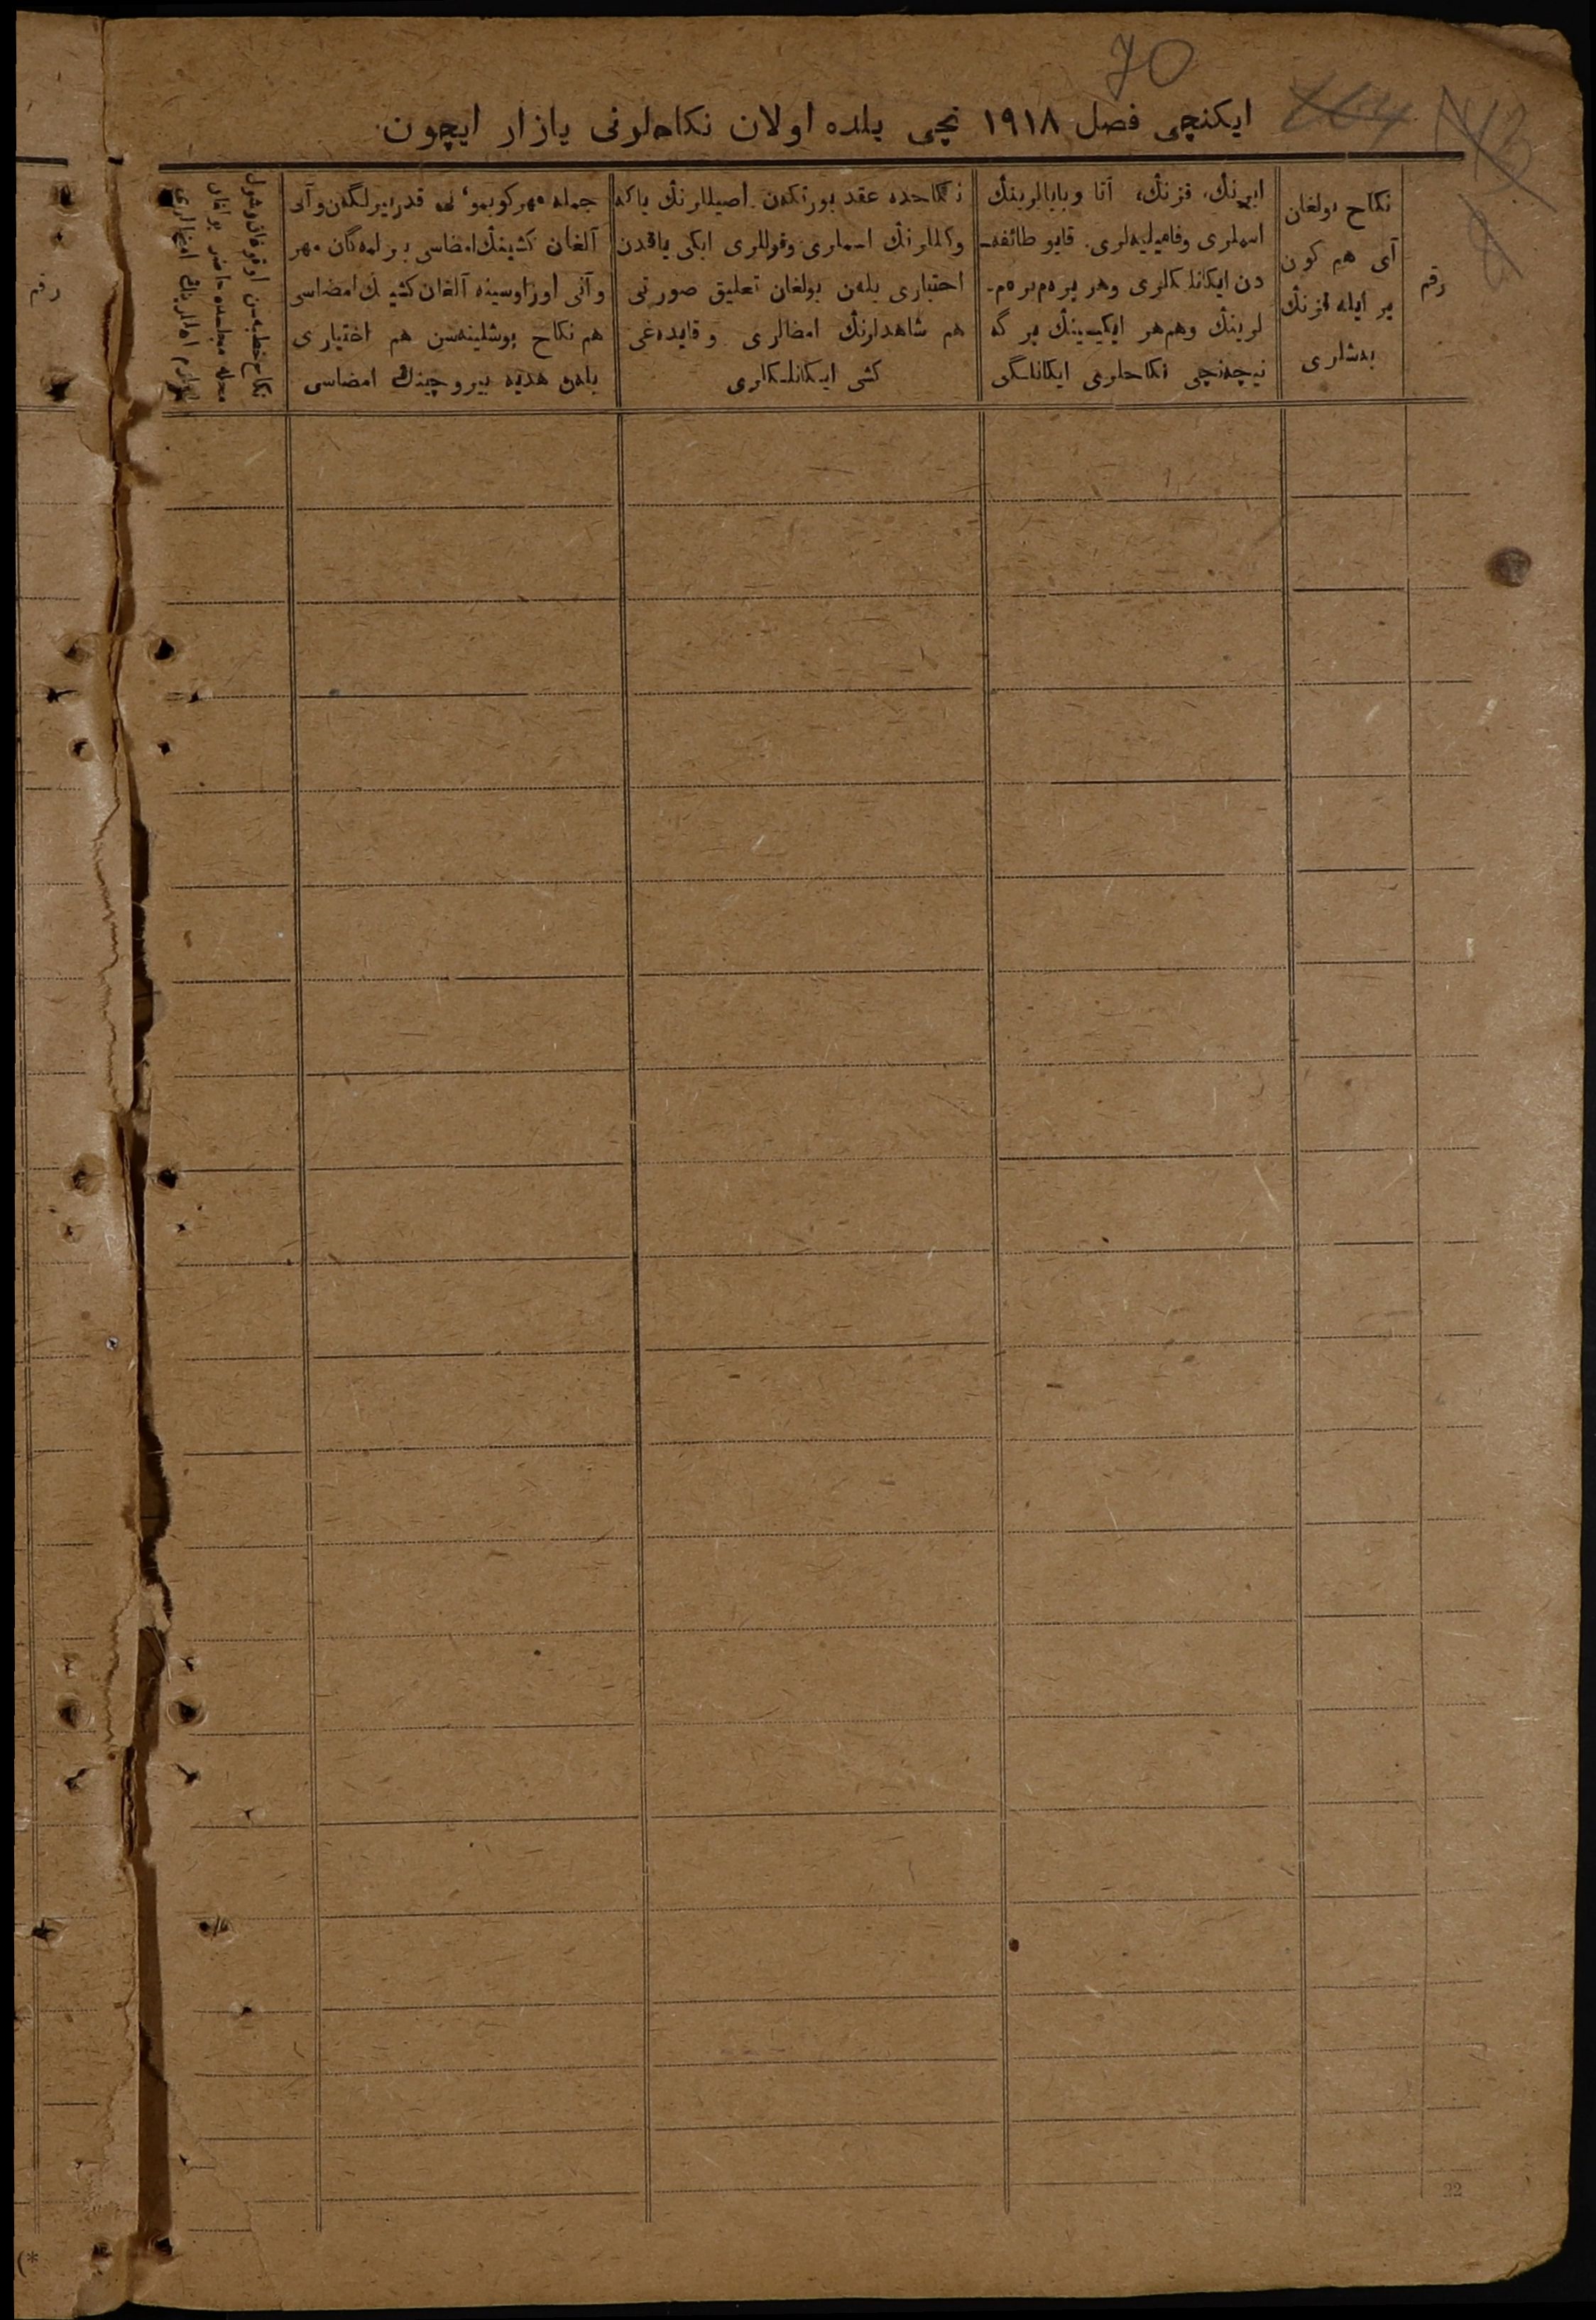 70
ایکنچی فصل ١٩١٨ نچی یلده اولان نکاحلرنی یازار ایچون.
رقم
نکاح بولغان
آی هم کون
بر ایله قزنڭ
یەشلری
ایرنڭ، قزنڭ، آتا وبابالرینڭ
اسملری وفامیلیەلری. قایو طائفه‌ـ
دن ایکانلکلری وهر برەم برەم‌ـ
لرینڭ وهم هر ایکیسینڭ بر گە
نیچەنچی نکاحلری ایکانلگی
نکاحده عقد یورتکەن اصیللرنڭ یاکە
وکیللرنڭ اسملری وقوللری ایکی یاقدن
اختیاری بلەن بولغان تعلیق صورتی
هم شاهدلرنڭ امضالری وقایدەغی
کشی ایکانلکلری
جمله مهر کوبمو؟ نی قدر بیرلگەن وآنی
آلغان کشینڭ امضاسی بیرلمەگان مهر
وآنی اوز اوسینه آلغان کشینڭ امضاسی
هم نکاح بوشلینەسن هم اختیاری
بلەن هدیه بیروچینڭ امضاسی
نکاح خطبەسن اوقوغان وشول
رقم
22
*)